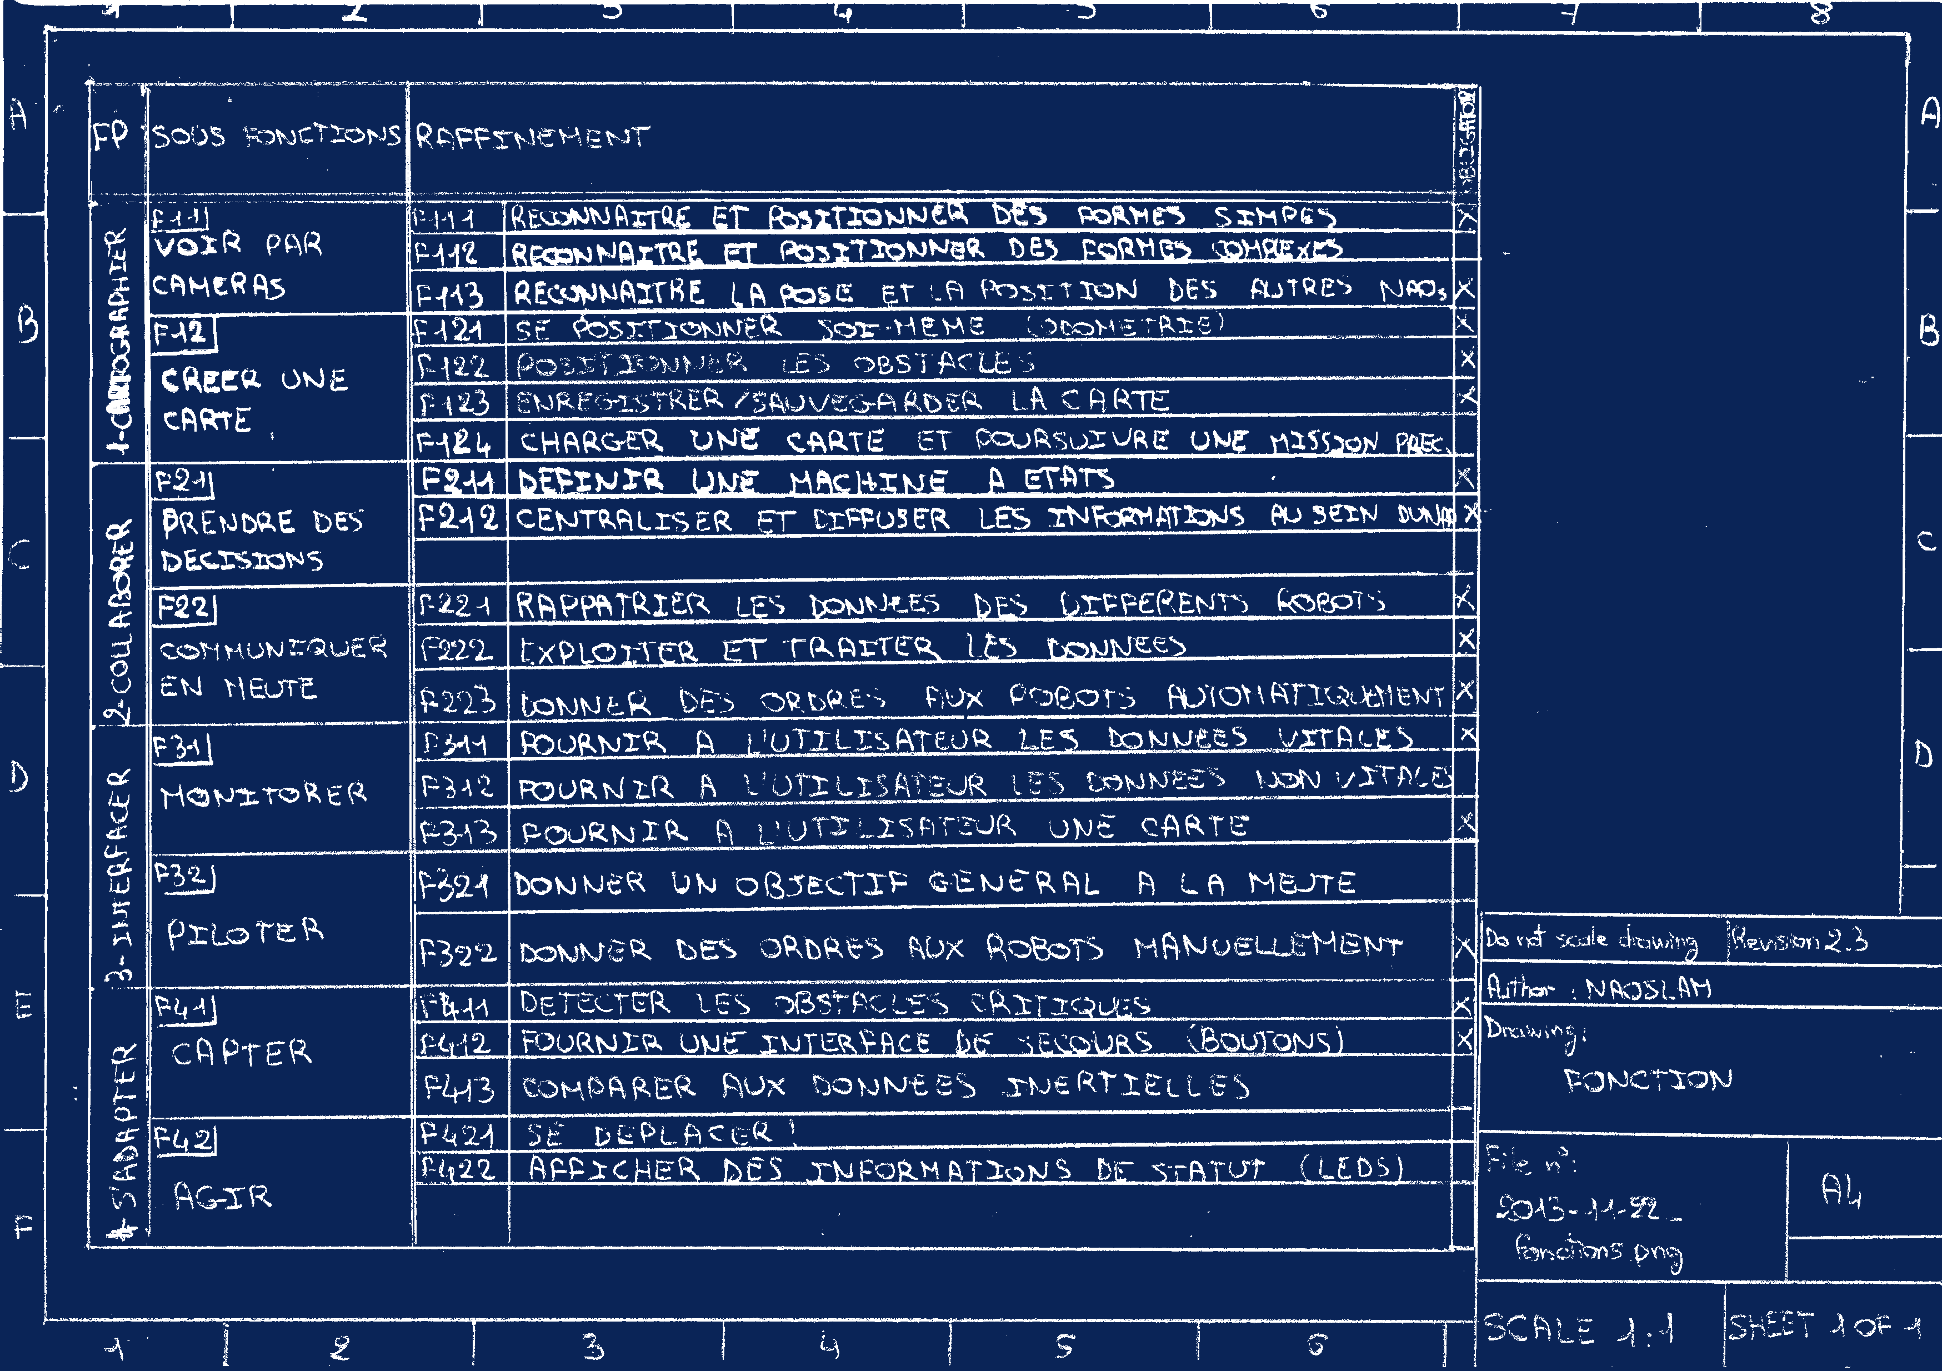 1 2 3 4 5 6 7 8
A A
FP SOUS FONCTIONS RAFFINEMENT OBLIGATION
1-CARTOGRAPHIER
F11
VOIR PAR
CAMERAS
F111 RECONNAITRE ET POSITIONNER DES FORMES SIMPES X
F112 RECONNAITRE ET POSITIONNER DES FORMES COMPEXES
F113 RECONNAITRE LA POSE ET LA POSITION DES AUTRES NAOs X
B B
F12
CREER UNE
CARTE
F121 SE POSITIONNER SOI-MEME (ODOMETRIE) X
F122 POSITIONNER LES OBSTACLES X
F123 ENREGISTRER/SAUVEGARDER LA CARTE X
F124 CHARGER UNE CARTE ET POURSUIVRE UNE MISSION PREC.
2-COLLABORER
F21
PRENDRE DES
DECISIONS
F211 DEFINIR UNE MACHINE A ETATS X
F212 CENTRALISER ET DIFFUSER LES INFORMATIONS AU SEIN X
C C
F22
COMMUNIQUER
EN MEUTE
F221 RAPPATRIER LES DONNEES DES DIFFERENTS ROBOTS X
F222 EXPLOITER ET TRAITER LES DONNEES X
F223 DONNER DES ORDRES AUX ROBOTS AUTOMATIQUEMENT X
3-INTERFACER
F31
MONITORER
F311 FOURNIR A L'UTILISATEUR LES DONNEES VITALES X
F312 FOURNIR A L'UTILISATEUR LES DONNEES NON VITALES
F313 FOURNIR A L'UTILISATEUR UNE CARTE X
D D
F32
PILOTER
F321 DONNER UN OBJECTIF GENERAL A LA MEUTE
F322 DONNER DES ORDRES AUX ROBOTS MANUELLEMENT X
4-S'ADAPTER
F41
CAPTER
F411 DETECTER LES OBSTACLES CRITIQUES X
F412 FOURNIR UNE INTERFACE DE SECOURS (BOUTONS) X
F413 COMPARER AUX DONNEES INERTIELLES
E
F42
AGIR
F421 SE DEPLACER!
F422 AFFICHER DES INFORMATIONS DE STATUT (LEDS)
F
Do not scale drawing Revision 2.3
Author : NAOSLAM
Drawing:
FONCTION
File n°:
2013-11-22_
fonctions.png
A4
SCALE 1:1 SHEET 1 OF 1
1 2 3 4 5 6